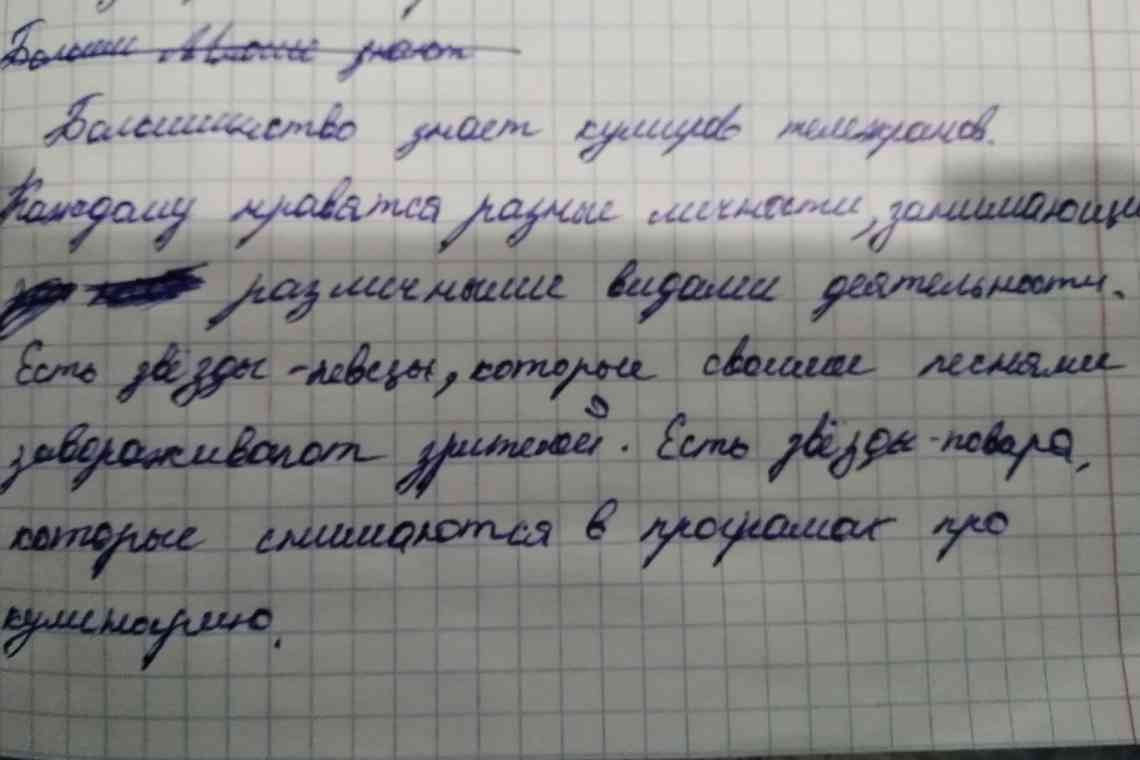 Большинство знает кумиров телеэкранов.
Каждому нравятся разные личности, занимающи
различными видами деятельности.
Есть звёзды-певецы, которые своими песнями
завораживают зрителей. Есть звёзды-повара,
которые снимаются в програмах про
кулинарию.